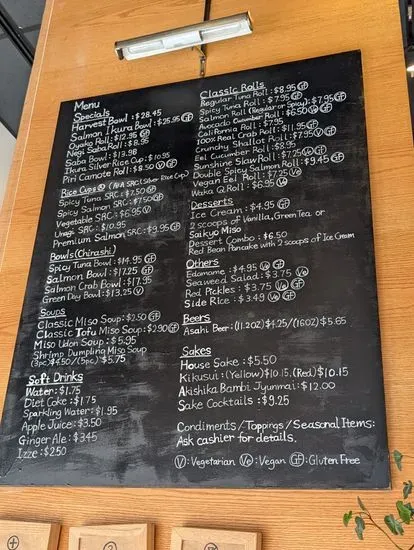 Menu
Specials
Harvest Bowl : $28.45
Salmon Ikura Bowl : $25.95 GF
Oyako Roll : $12.95 GF
Negi Saba Roll : $8.95
Saba Bowl : $13.98
Ikura Silver Rice Cup : $10.95
Piri Carrote Roll : $8.50 V GF
Rice Cups (A/A SRC: Silver Rice Cup)
Spicy Tuna SRC : $7.50 GF
Spicy Salmon SRC : $7.50 GF
Vegetable SRC : $6.95 V
Unagi SRC : $10.95
Premium Salmon SRC : $9.95 GF
Bowls (Chirashi)
Spicy Tuna Bowl : $14.95 GF
Salmon Bowl : $17.25 GF
Salmon Crab Bowl : $17.95
Green Day Bowl : $13.25 V
Soups
Classic Miso Soup : $2.50 GF
Classic Tofu Miso Soup : $2.90 GF
Miso Udon Soup : $5.95
Shrimp Dumpling Miso Soup
(3pc) $4.50 / (5pc) $5.75
Soft Drinks
Water : $1.75
Diet Coke : $1.75
Sparkling Water : $1.95
Apple Juice : $3.50
Ginger Ale : $3.45
Izze : $2.50
Classic Rolls
Regular Tuna Roll : $8.95 GF
Spicy Tuna Roll : $7.95 GF
Salmon Roll (Regular or Spicy) : $7.95 GF
Avocado Cucumber Roll : $6.50 Ve GF
California Roll : $7.95
100% Real Crab Roll : $11.95 GF
Crunchy Shallot Roll : $7.95 V GF
Eel Cucumber Roll : $8.95
Sunshine Slaw Roll : $7.25 Ve GF
Double Spicy Salmon Roll : $9.45 GF
Vegan Eel Roll : $7.25 Ve
Waka Q Roll : $6.95 Ve
Desserts
Ice Cream : $4.95 GF
2 scoops of Vanilla, Green Tea or
Saikyo Miso
Dessert Combo : $6.50
Red Bean Pancake with 2 scoops of Ice Cream
Others
Edamame : $4.95 Ve GF
Seaweed Salad : $3.75 Ve
Red Pickles : $3.75 Ve GF
Side Rice : $3.49 Ve GF
Beers
Asahi Beer : (11.2OZ) $4.25 / (16OZ) $5.65
Sakes
House Sake : $5.50
Kikusui : (Yellow) $10.15, (Red) $10.15
Akishika Bambi Jyunmai : $12.00
Sake Cocktails : $9.25
Condiments / Toppings / Seasonal Items:
Ask cashier for details.
V : Vegetarian Ve : Vegan GF : Gluten Free